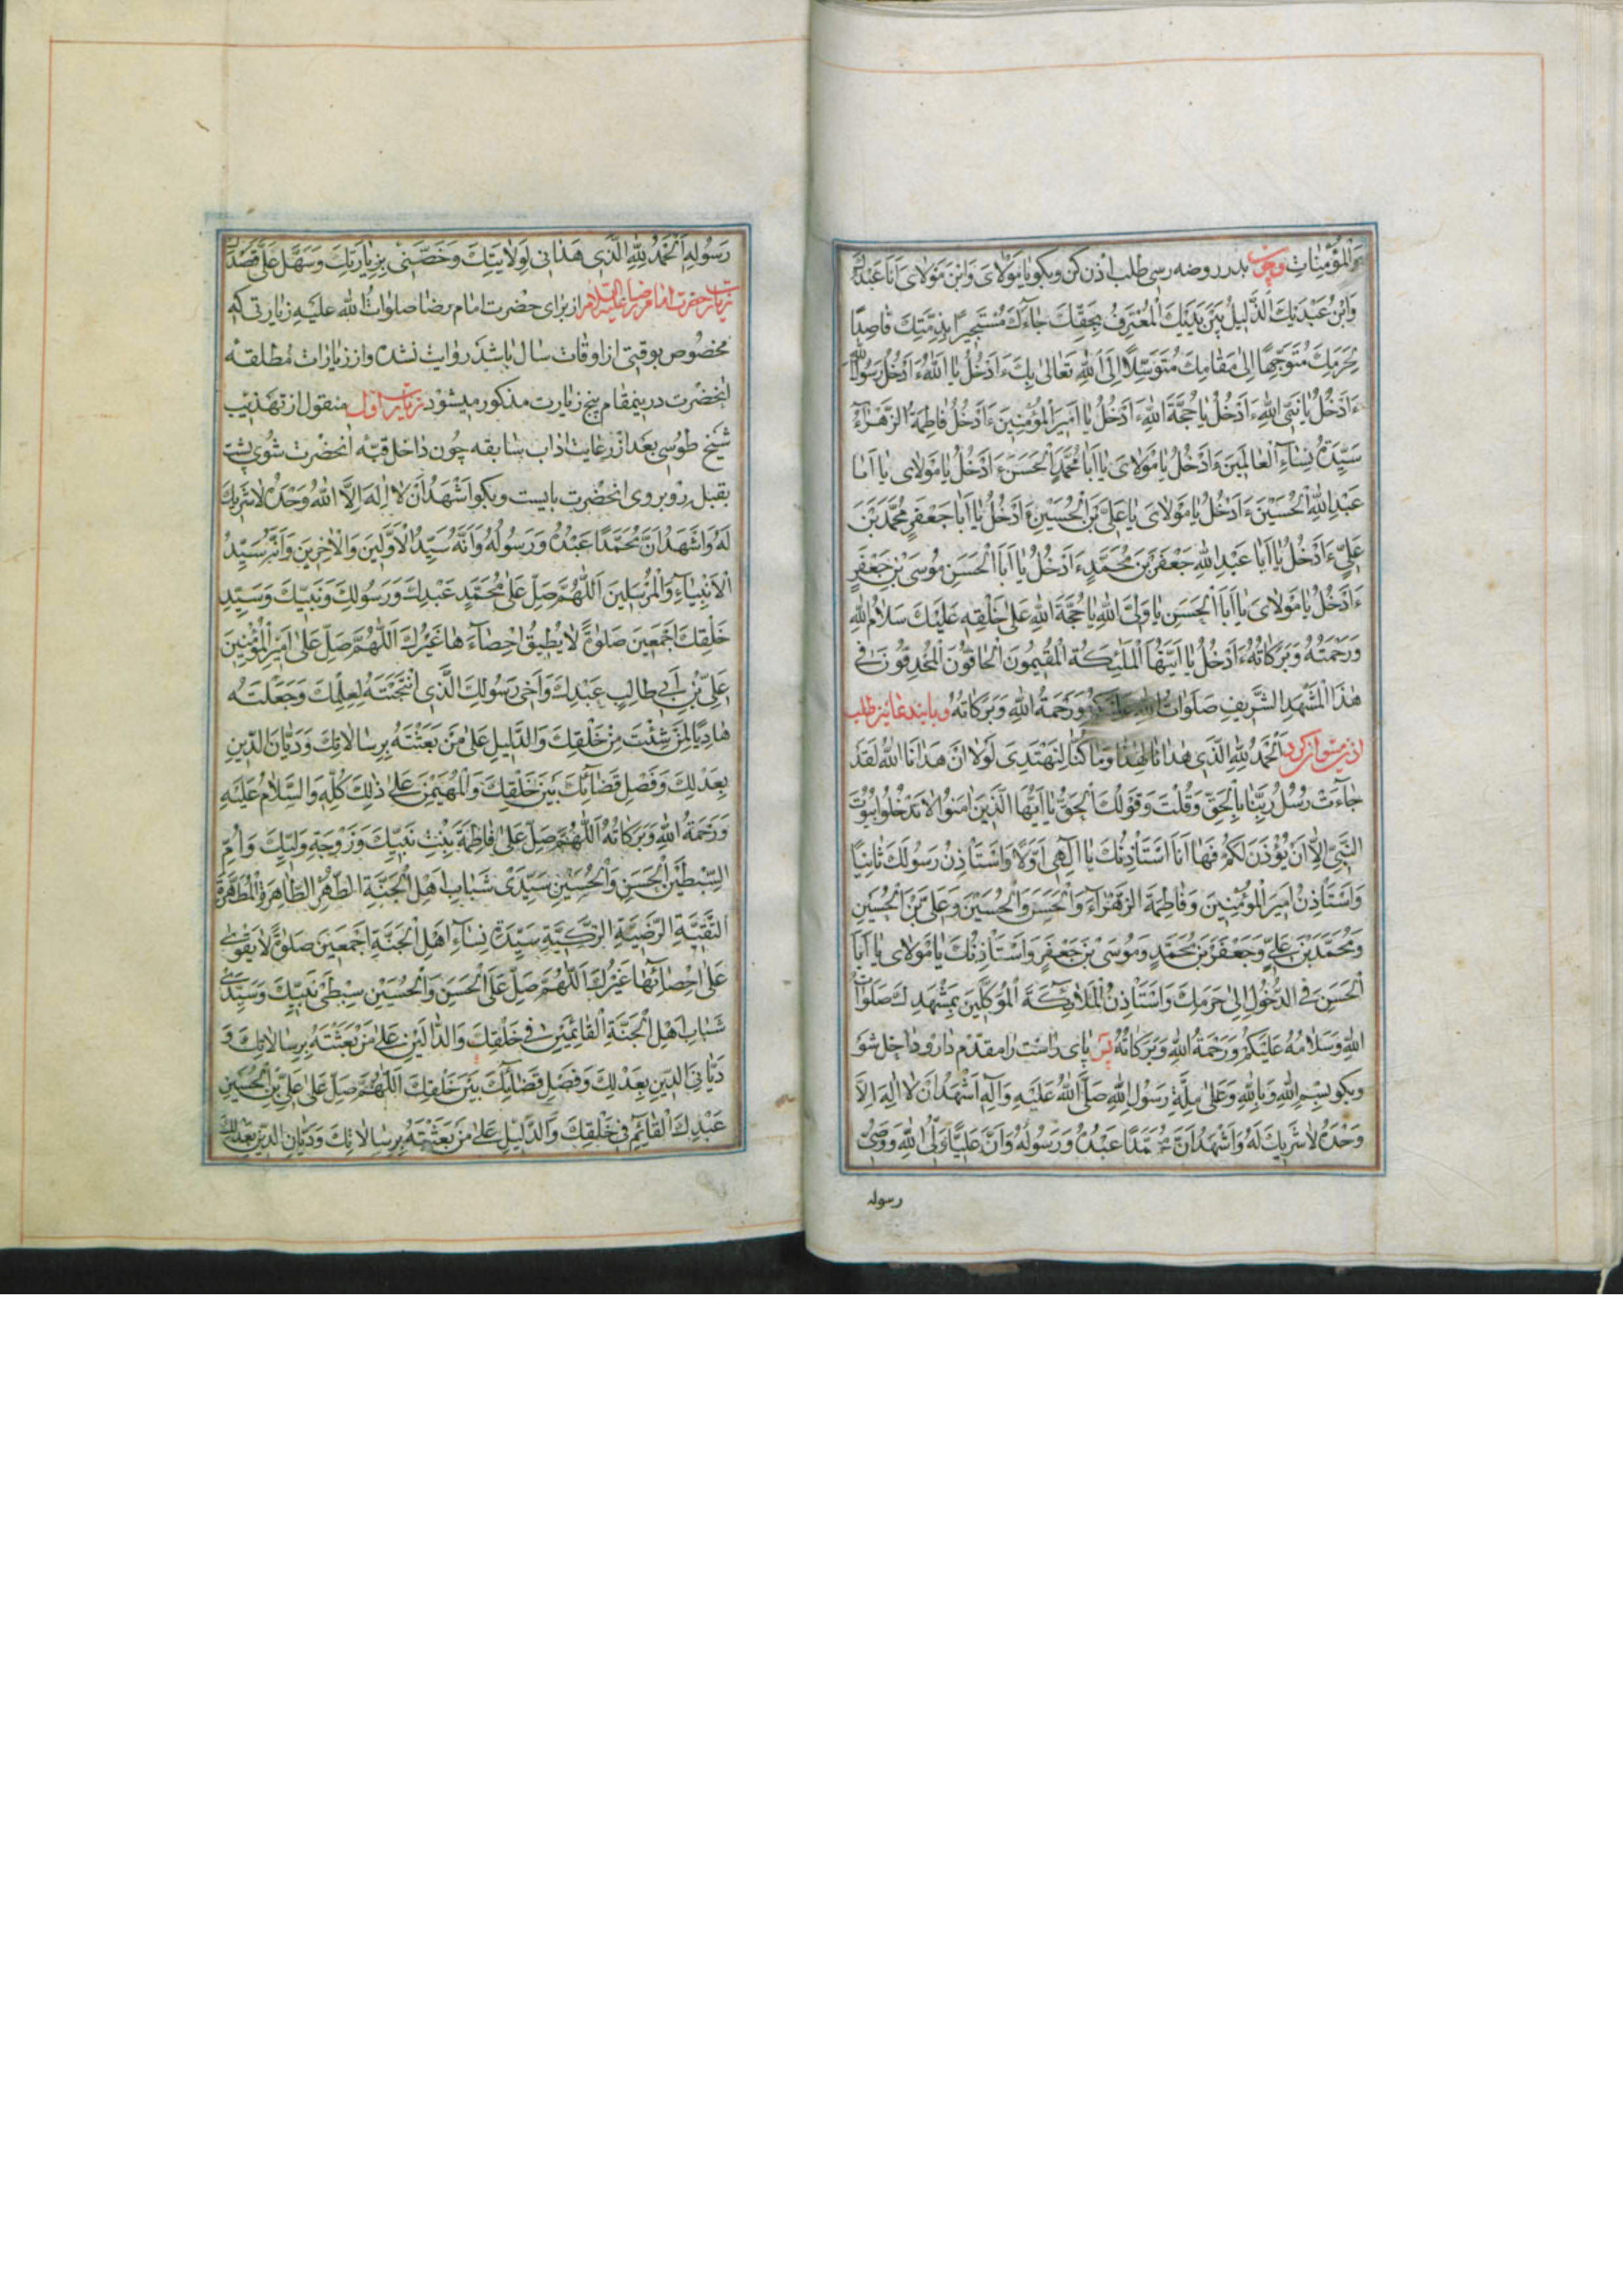 وَالْمُؤْمِنَاتِ وچون بدر روضه رسی طلب اذن کن وبکو یا مَوْلَایَ وَابْنَ مَوْلَایَ اَنَا عَبْدُكَ
وَابْنُ عَبْدَیْكَ الذَّلِیلُ بَیْنَ یَدَیْكَ الْمُعْتَرِفُ بِحَقِّكَ جٰاءَكَ مُسْتَجِیرًا بِذِمَّتِكَ قٰاصِدًا
لِحَرَمِكَ مُتَوَجِّهًا اِلٰی مَقٰامِكَ مُتَوَسِّلًا اِلَی اللهِ تَعٰالیٰ بِكَ ءَاَدْخُلُ یٰا اَللهُ ءَاَدْخُلُ یٰا رَسُولَ اللهِ
ءَاَدْخُلُ یٰا نَبِیَّ اللهِ ءَاَدْخُلُ یٰا حُجَّةَ اللهِ ءَاَدْخُلُ یٰا اَمِیرَ الْمُؤْمِنِینَ ءَاَدْخُلُ فٰاطِمَةُ الزَّهْرٰآءُ
سَیِّدَةُ نِسٰاءِ الْعٰالَمِینَ ءَاَدْخُلُ یٰا مَوْلٰایَ یٰا اَبٰا مُحَمَّدٍ الْحَسَنَ ءَاَدْخُلُ یٰا مَوْلٰایَ یٰا اَبٰا
عَبْدِ اللهِ الْحُسَیْنَ ءَاَدْخُلُ یٰا مَوْلٰایَ یٰا عَلِیَّ بْنَ الْحُسَیْنِ ءَاَدْخُلُ یٰا اَبٰا جَعْفَرٍ مُحَمَّدَ بْنَ
عَلِیٍّ ءَاَدْخُلُ یٰا اَبٰا عَبْدِ اللهِ جَعْفَرَ بْنَ مُحَمَّدٍ ءَاَدْخُلُ یٰا اَبَا الْحَسَنِ مُوسَی بْنَ جَعْفَرٍ
ءَاَدْخُلُ یٰا مَوْلٰایَ یٰا اَبَا الْحَسَنِ یٰا وَلِیَّ اللهِ یٰا حُجَّةَ اللهِ عَلیٰ خَلْقِهِ عَلَیْكَ سَلٰامُ اللهِ
وَرَحْمَتُهُ وَبَرَکٰاتُهُ ءَاَدْخُلُ یٰا اَیَّتُهَا الْمَلٰئِکَةُ الْمُقِیمُونَ الْحٰافُّونَ الْمُحْدِقُونَ فِی
هٰذَا الْمَشْهَدِ الشَّرِیفِ صَلَوٰاتُ اللهِ عَلَیْکُمْ وَرَحْمَةُ اللهِ وَبَرَکٰاتُهُ وباین دعا نیز طلب
اذن میتوان کرد اَلْحَمْدُ لِلّٰهِ الَّذِی هَدٰانٰا لِهٰذٰا وَمٰا کُنّٰا لِنَهْتَدِیَ لَوْلٰا اَنْ هَدٰانَا اللهُ لَقَدْ
جٰاءَتْ رُسُلُ رَبِّنٰا بِالْحَقِّ وَقُلْتَ وَقَوْلُكَ الْحَقُّ یٰا اَیُّهَا الَّذِینَ اٰمَنُوا لٰا تَدْخُلُوا بُیُوتَ
النَّبِیِّ اِلّٰا اَنْ یُؤْذَنَ لَکُمْ فَهٰا اَنَا اَسْتَأْذِنُكَ یٰا اِلٰهِی اَوَّلًا وَاَسْتَأْذِنُ رَسُولَكَ ثٰانِیًا
وَاَسْتَأْذِنُ اَمِیرَ الْمُؤْمِنِینَ وَفٰاطِمَةَ الزَّهْرٰآءَ وَالْحَسَنَ وَالْحُسَیْنَ وَعَلِیَّ بْنَ الْحُسَیْنِ
وَمُحَمَّدَ بْنَ عَلِیٍّ وَجَعْفَرَ بْنَ مُحَمَّدٍ وَمُوسَی بْنَ جَعْفَرٍ وَاَسْتَأْذِنُكَ یٰا مَوْلٰایَ یٰا اَبَا
الْحَسَنِ فِی الدُّخُولِ اِلٰی حَرَمِكَ وَاَسْتَأْذِنُ الْمَلٰائِکَةَ الْمُوَکَّلِینَ بِمَشْهَدِكَ صَلَوٰاتُ
اللهِ وَسَلٰامُهُ عَلَیْکُمْ وَرَحْمَةُ اللهِ وَبَرَکٰاتُهُ پس پای راست را مقدّم دار و داخل شو
وبکو بِسْمِ اللهِ وَبِاللهِ وَعَلیٰ مِلَّةِ رَسُولِ اللهِ صَلَّی اللهُ عَلَیْهِ وَآلِهِ اَشْهَدُ اَنْ لٰا اِلٰهَ اِلَّا
وَحْدَهُ لٰا شَرِیكَ لَهُ وَاَشْهَدُ اَنَّ مُحَمَّدًا عَبْدُهُ وَرَسُولُهُ وَاَنَّ عَلِیًّا وَلِیُّ اللهِ وَوَصِیُّ
رسوله
رَسُولِهِ اَلْحَمْدُ لِلّٰهِ الَّذِی هَدٰانِی لِوَلٰایَتِكَ وَخَصَّنِی بِزِیٰارَتِكَ وَسَهَّلَ عَلَیَّ قَصْدَكَ
زیارت حضرت امام رضا علیه السلام از برای حضرت امام رضا صلوات الله علیه زیارتی که
مخصوص بوقتی از اوقات سال باشد روایت نشده و از زیارات مطلقه
انحضرت درینمقام پنج زیارت مذکور میشود زیارت اول منقول از تهذیب
شیخ طوسی بعد از رعایت اداب سابقه چون داخل قبّه انحضرت شوی پشت
بقبله روبروی انحضرت بایست وبکو اَشْهَدُ اَنْ لٰا اِلٰهَ اِلَّا اللهُ وَحْدَهُ لٰا شَرِیكَ
لَهُ وَاَشْهَدُ اَنَّ مُحَمَّدًا عَبْدُهُ وَرَسُولُهُ وَاَنَّهُ سَیِّدُ الْاَوَّلِینَ وَالْاٰخِرِینَ وَاَنَّهُ سَیِّدُ
الْاَنْبِیٰآءِ وَالْمُرْسَلِینَ اَللّٰهُمَّ صَلِّ عَلیٰ مُحَمَّدٍ عَبْدِكَ وَرَسُولِكَ وَنَبِیِّكَ وَسَیِّدِ
خَلْقِكَ اَجْمَعِینَ صَلٰوةً لٰا یُطِیقُ اِحْصٰآءَهٰا غَیْرُكَ اَللّٰهُمَّ صَلِّ عَلیٰ اَمِیرِ الْمُؤْمِنِینَ
عَلِیِّ بْنِ اَبِی طٰالِبٍ عَبْدِكَ وَاَخِی رَسُولِكَ الَّذِی انْتَجَبْتَهُ لِعِلْمِكَ وَجَعَلْتَهُ
هٰادِیًا لِمَنْ شِئْتَ مِنْ خَلْقِكَ وَالدَّلِیلَ عَلیٰ مَنْ بَعَثْتَهُ بِرِسٰالٰاتِكَ وَدَیّٰانَ الدِّینِ
بِعَدْلِكَ وَفَصْلِ قَضٰآئِكَ بَیْنَ خَلْقِكَ وَالْمُهَیْمِنَ عَلیٰ ذٰلِكَ کُلِّهِ وَالسَّلٰامُ عَلَیْهِ
وَرَحْمَةُ اللهِ وَبَرَکٰاتُهُ اَللّٰهُمَّ صَلِّ عَلیٰ فٰاطِمَةَ بِنْتِ نَبِیِّكَ وَزَوْجَةِ وَلِیِّكَ وَاُمِّ
السِّبْطَیْنِ الْحَسَنِ وَالْحُسَیْنِ سَیِّدَیْ شَبٰابِ اَهْلِ الْجَنَّةِ الطُّهْرِ الطّٰاهِرَةِ الْمُطَهَّرَةِ
النَّقِیَّةِ الرَّضِیَّةِ الزَّکِیَّةِ سَیِّدَةِ نِسٰآءِ اَهْلِ الْجَنَّةِ اَجْمَعِینَ صَلٰوةً لٰا یَقْویٰ
عَلیٰ اِحْصٰائِهٰا غَیْرُكَ اَللّٰهُمَّ صَلِّ عَلَی الْحَسَنِ وَالْحُسَیْنِ سِبْطَیْ نَبِیِّكَ وَسَیِّدَیْ
شَبٰابِ اَهْلِ الْجَنَّةِ الْقٰائِمَیْنِ فِی خَلْقِكَ وَالدّٰالَّیْنِ عَلیٰ مَنْ بَعَثْتَهُ بِرِسٰالٰاتِكَ وَ
دَیّٰانَیِ الدِّینِ بِعَدْلِكَ وَفَصْلِ قَضٰآئِكَ بَیْنَ خَلْقِكَ اَللّٰهُمَّ صَلِّ عَلیٰ عَلِیِّ بْنِ الْحُسَیْنِ
عَبْدِكَ الْقٰائِمِ فِی خَلْقِكَ وَالدَّلِیلِ عَلیٰ مَنْ بَعَثْتَهُ بِرِسٰالٰاتِكَ وَدَیّٰانِ الدِّینِ بِعَدْلِكَ